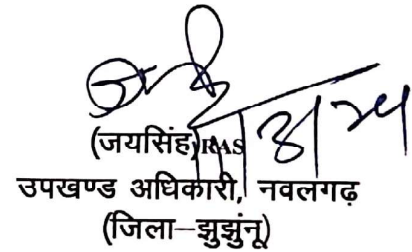 (जयसिंह)RAS
उपखण्ड अधिकारी, नवलगढ़
(जिला–झुझुंनू)